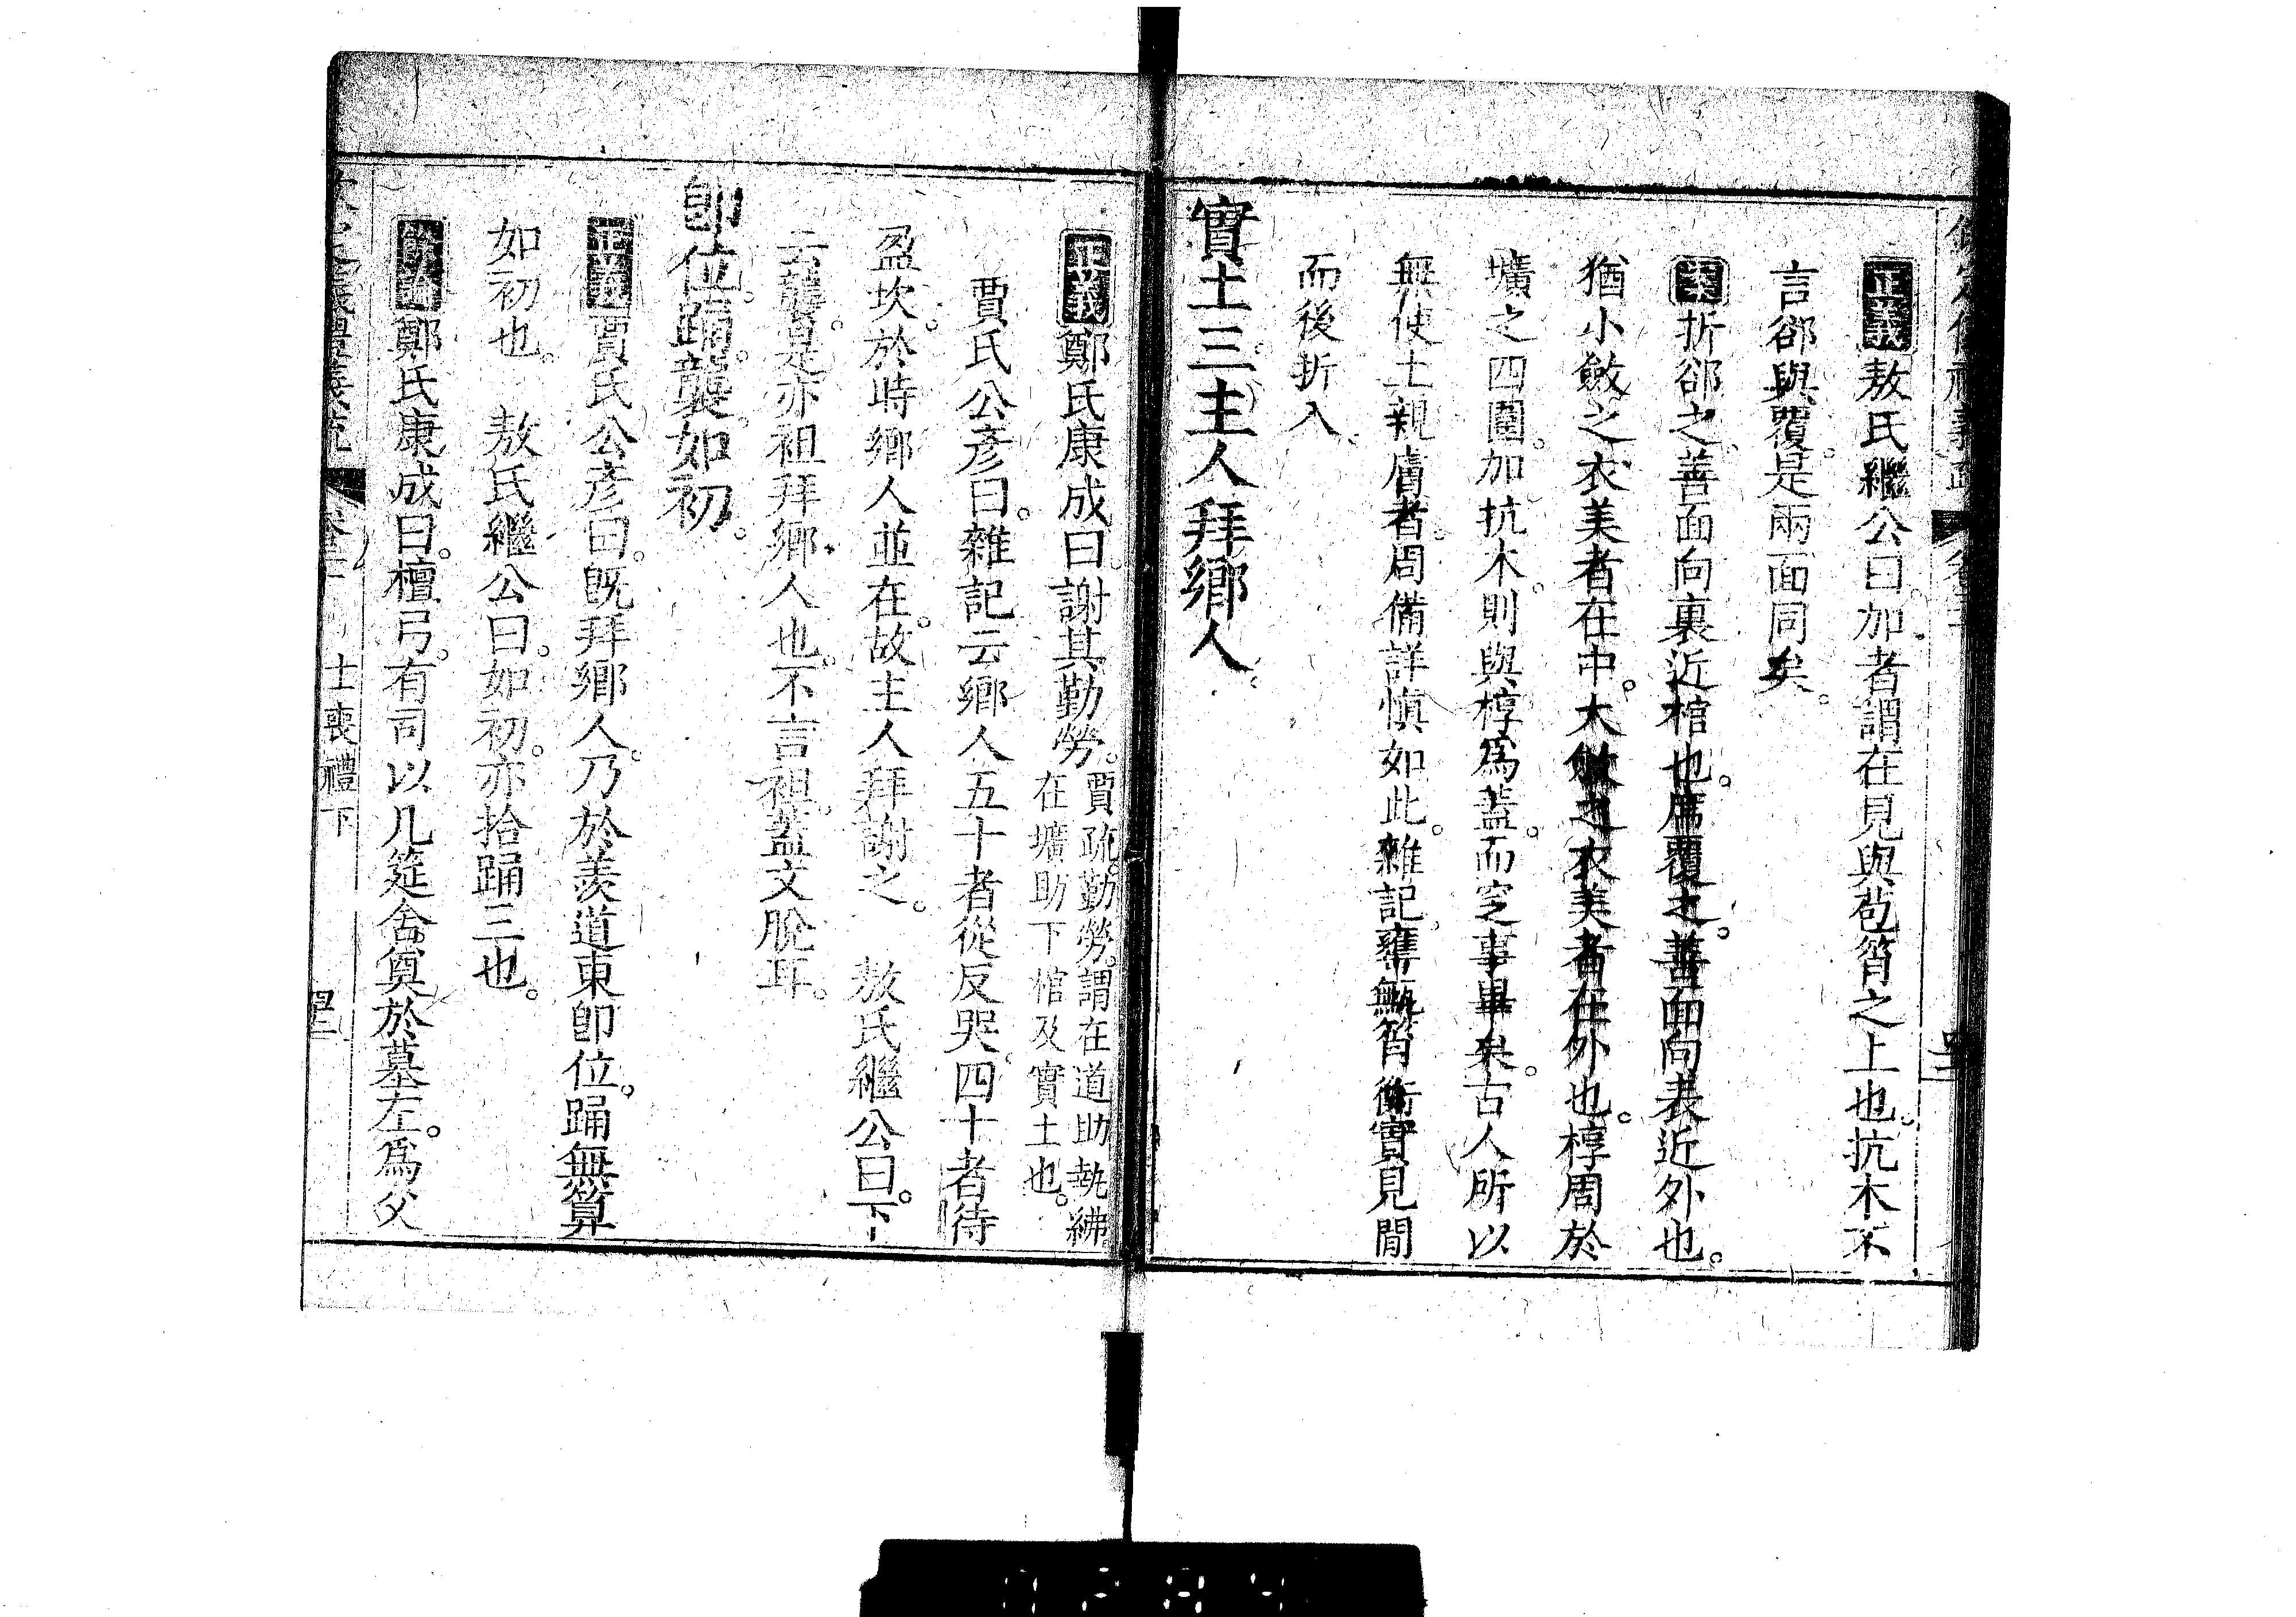 正義敖氏繼公曰。加者。謂在見與苞筲之上也。抗木不
言郤與覆。是兩面同矣。
案折郤之。善面向裏近棺也。席覆之。善面向表近外也。
猶小斂之衣美者在中。大斂之衣美者在外也。椁周於
壙之四圍。加抗木。則與椁爲蓋。而窆事畢矣。古人所以
無使土親膚者。周備詳愼如此。雜記。甕甒筲衡實見閒
而後折入。
實土三。主人拜鄉人。
正義鄭氏康成曰。謝其勤勞。
賈疏。勤勞。謂在道助執紼
在壙助下棺及實土也。
賈氏公彥曰。雜記云鄉人五十者從反哭。四十者待
盈坎。於時鄉人並在。故主人拜謝之。 敖氏繼公曰。下
云襲。是亦袒拜鄉人也。不言袒。蓋文脫耳。
卽位。踊。襲。如初。
正義賈氏公彥曰。旣拜鄉人。乃於羨道東卽位。踊無算
如初也。 敖氏繼公曰。如初。亦拾踊三也。
餘論鄭氏康成曰。檀弓。有司以几筵舍奠於墓左。爲父
士喪禮下